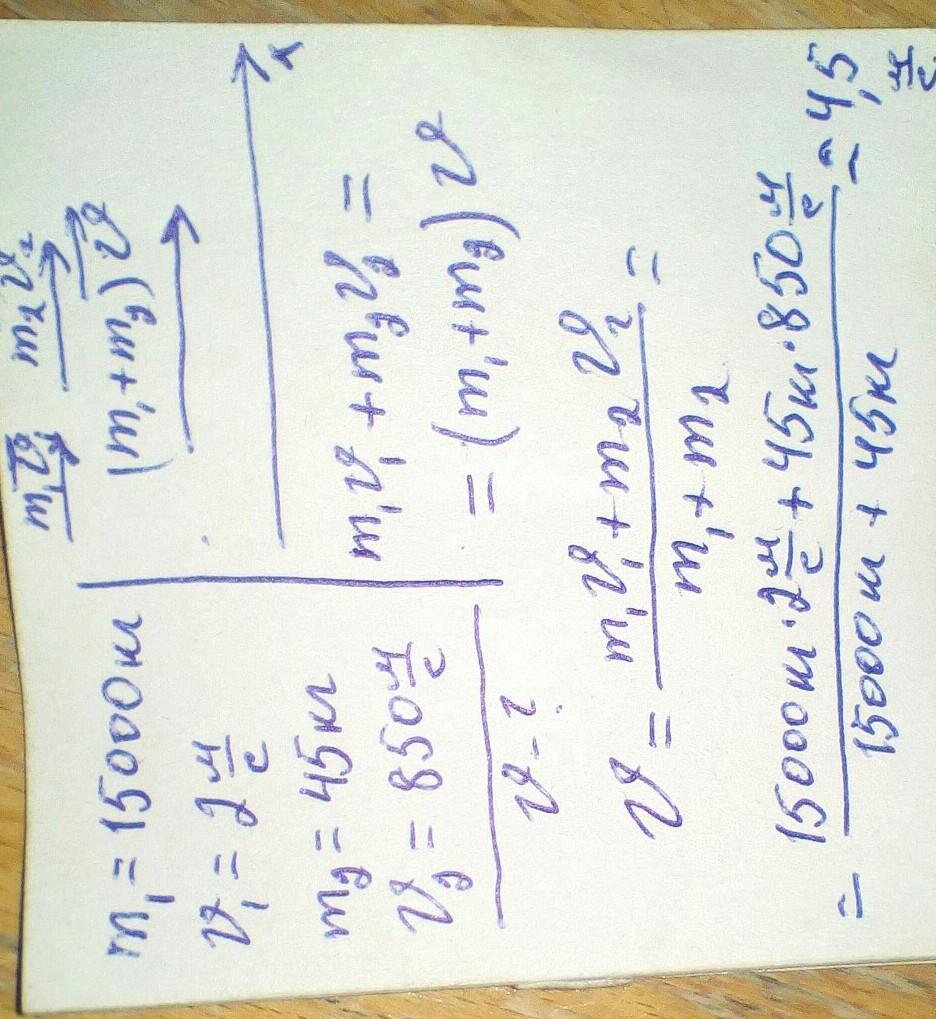 m₁ = 15000 кг
v₁ = 2 м/с
m₂ = 45 кг
v₂ = 850 м/с
v - ?
m₁v₁ m₂v₂
(m₁+m₂)v
x
m₁v₁ + m₂v₂ =
= (m₁+m₂) v
v = (m₁v₁ + m₂v₂)/(m₁+m₂) =
= (15000 кг · 2 м/с + 45 кг · 850 м/с)/(15000 кг + 45 кг) = 4,5 м/с